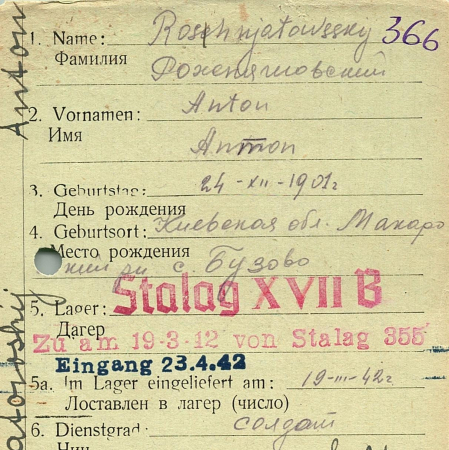 1. Name: Roschnjatowssky 366
Фамилия Рохенятовский
2. Vornamen: Anton
Имя Антон
3. Geburtstag: 24-XII-1901г
День рождения
4. Geburtsort: Киевская обл. Макаро
Место рождения
с. Бузово
5. Lager: Stalag XVII B
Лагер
Zu am 19-3-12 von Stalag 355
Eingang 23.4.42
5a. Im Lager eingeliefert am: 19-III-42г
Доставлен в лагер (число)
6. Dienstgrad: солдат
Чин
Anton